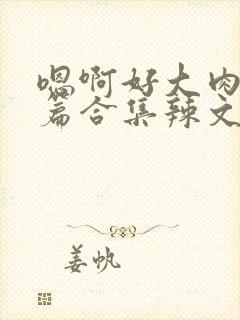 嗯啊好大肉
篇合集辣文
姜帆